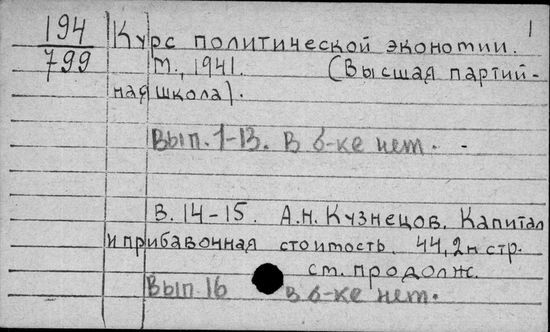 194
799
1
Курс политической экономии.
М., 1941. (Высшая партий-
ная школа).
Вып. 1-13. В б-ке нет.
В. 14-15. А.Н. Кузнецов. Капитал
и прибавочная стоимость. 44, 2 н стр.
см. продолж.
Вып. 16 В б-ке нет.